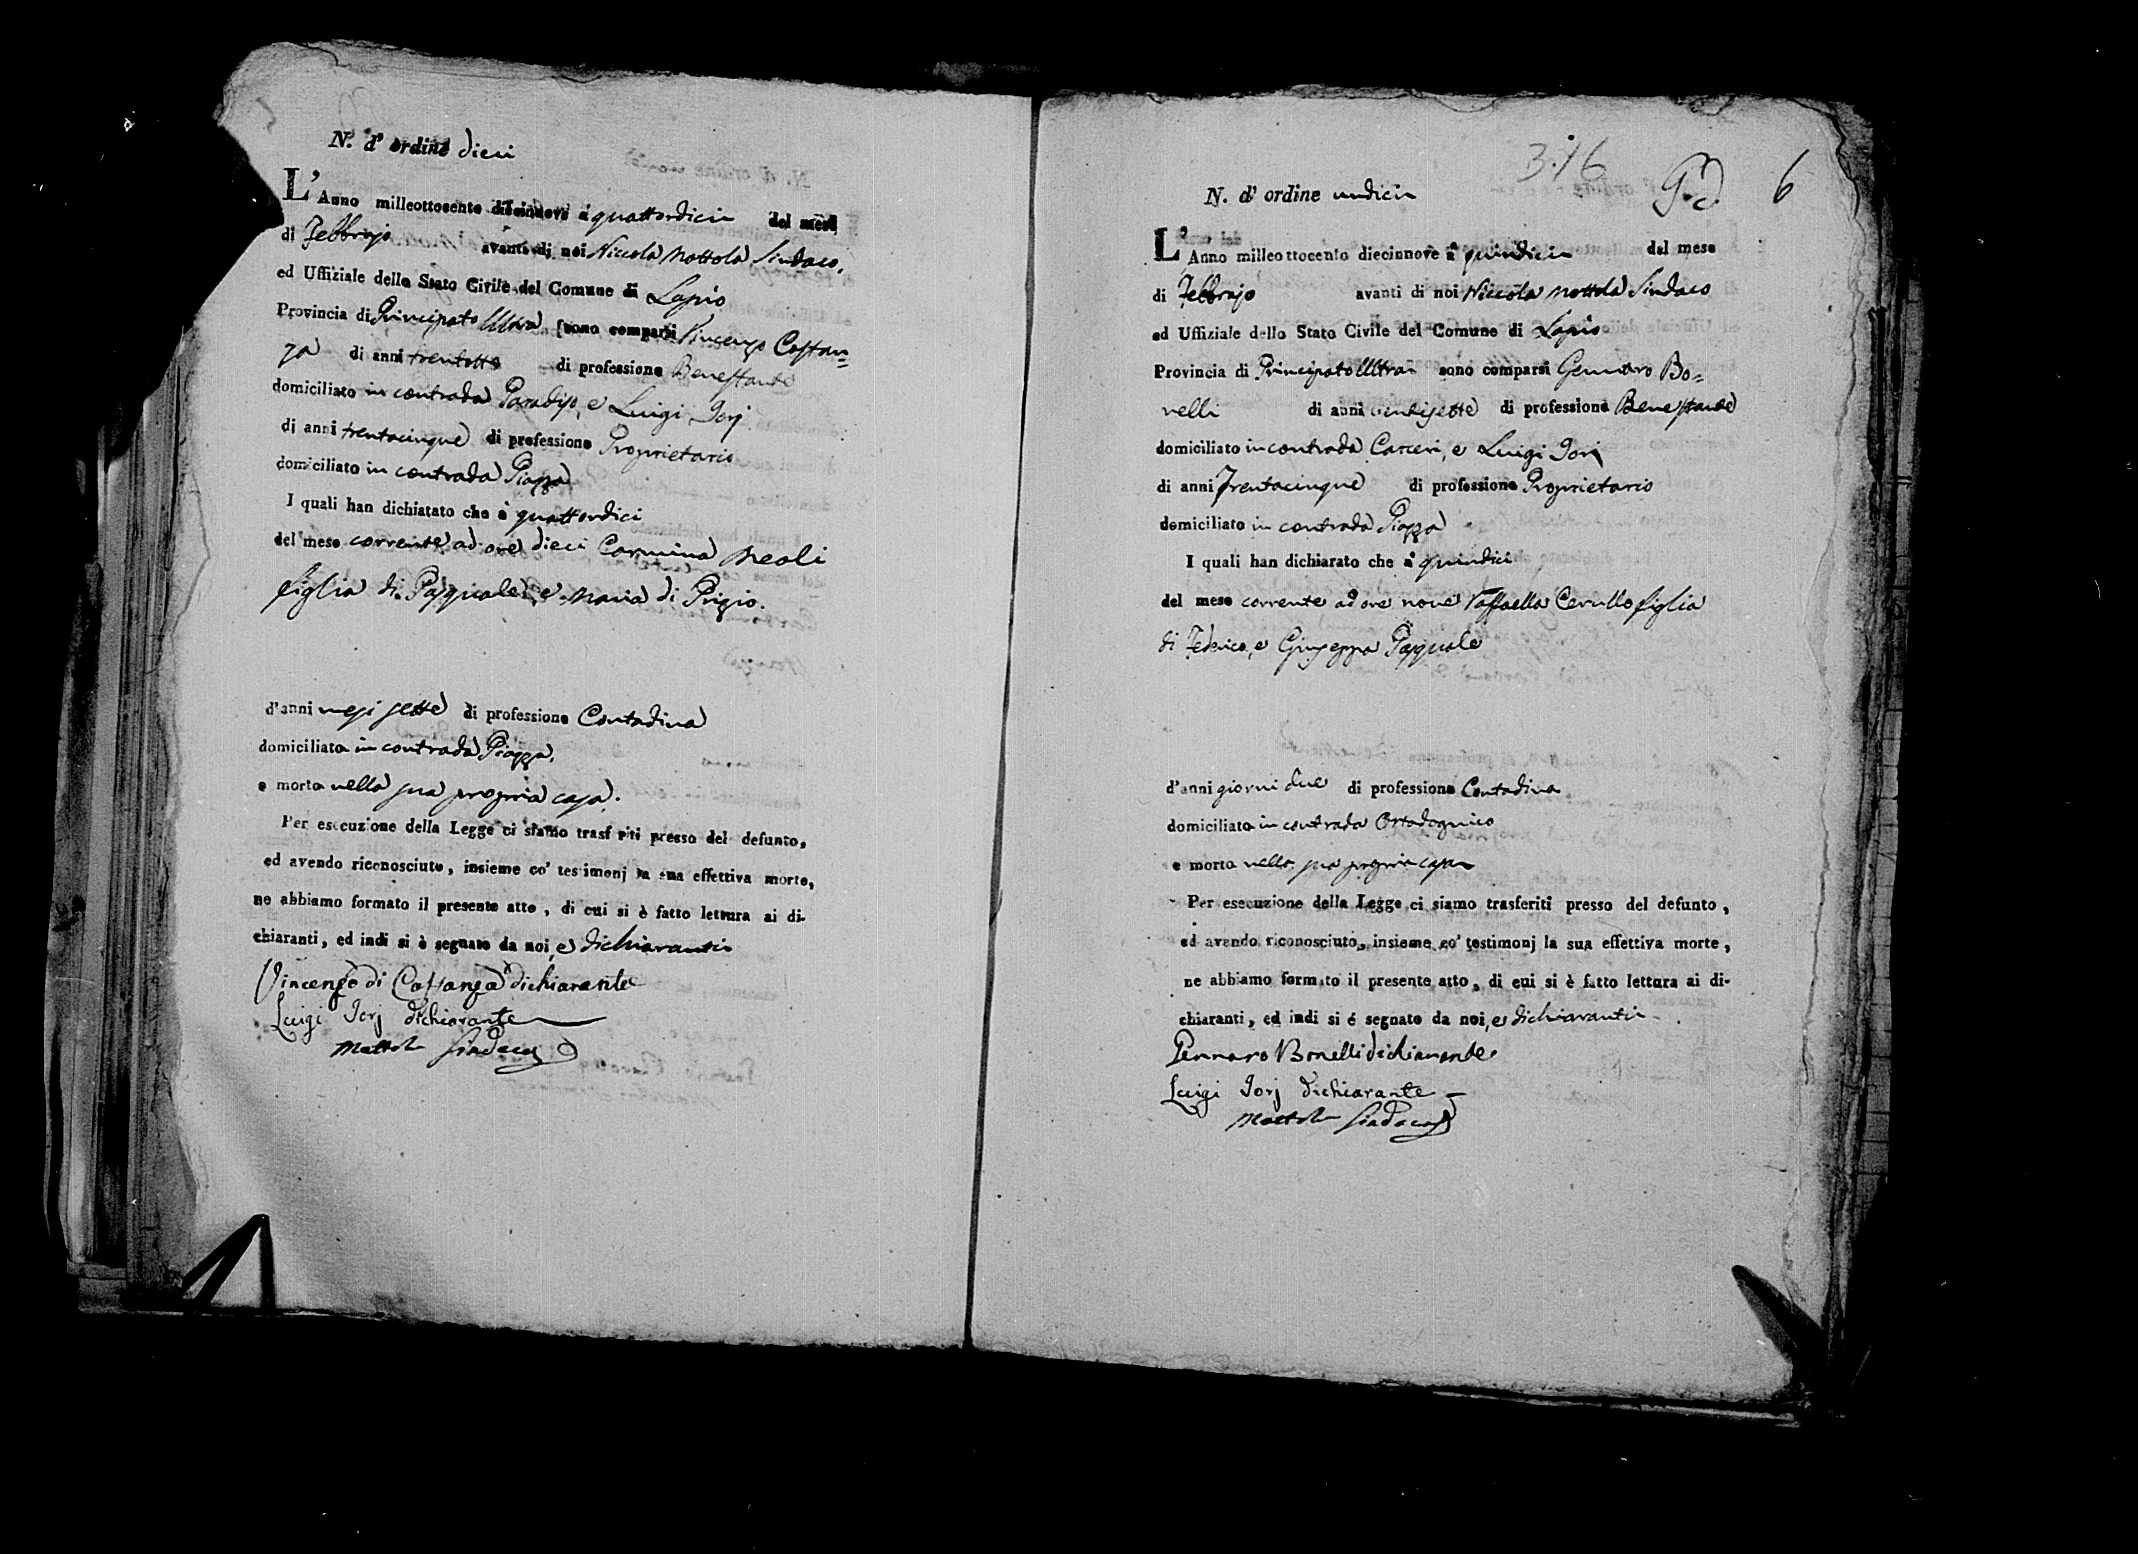 N. d' ordine dieci
L' Anno milleottocento diecinnove à quattordici del mese
di Febbrajo avanti di noi Niccola Mottola Sindaco,
ed Uffiziale dello Stato Civile del Comune di Lapio
Provincia di Principato Ultra sono comparsi Vincenzo Costan=
za di anni trentotto di professione Benestante
domiciliato in contrada Paradiso, e Luigi Iorj
di anni trentacinque di professione Proprietario
domiciliato in contrada Piazza
I quali han dichiatato che à quattordici
del mese corrente ad ore dieci Carmina Meoli
figlia di Pasquale, e Maria di Prizio.
d'anni mesi sette di professione Contadina
domiciliata in contrada Piazza,
e morta nella sua propria casa.
Per esecuzione della Legge ci siamo trasf riti presso del defunto,
ed avendo riconosciuto, insieme co' testimonj la sua effettiva morte,
ne abbiamo formato il presente atto, di cui si è fatto lettura ai di-
chiaranti, ed indi si è segnato da noi, e dichiaranti
Vincenzo di Costanza dichiarante
Luigi Iorj dichiarante
Mottola Sindaco
3.16
6
N. d' ordine undici
L' Anno milleottocento diecinnove à quindici del mese
di Febbrajo avanti di noi Niccola Mottola Sindaco
ed Uffiziale dello Stato Civile del Comune di Lapio
Provincia di Principato Ultra sono comparsi Gennaro Bo=
nelli di anni ventisette di professione Benestante
domiciliato in contrada Carceri, e Luigi Iorj
di anni Trentacinque di professione Proprietario
domiciliato in contrada Piazza
I quali han dichiarato che à quindici
del mese corrente ad ore nove Raffaella Cerullo figlia
di Federico, e Giuseppa Pasquale
d'anni giorni due di professione Contadina
domiciliata in contrada
e morta nella sua propria casa
Per esecuzione della Legge ci siamo trasferiti presso del defunto,
ed avendo riconosciuto, insieme co' testimonj la sua effettiva morte,
ne abbiamo formato il presente atto, di cui si è fatto lettura ai di-
chiaranti, ed indi si é segnato da noi, e dichiaranti
Gennaro Bonelli dichiarante
Luigi Iorj dichiarante
Mottola Sindaco